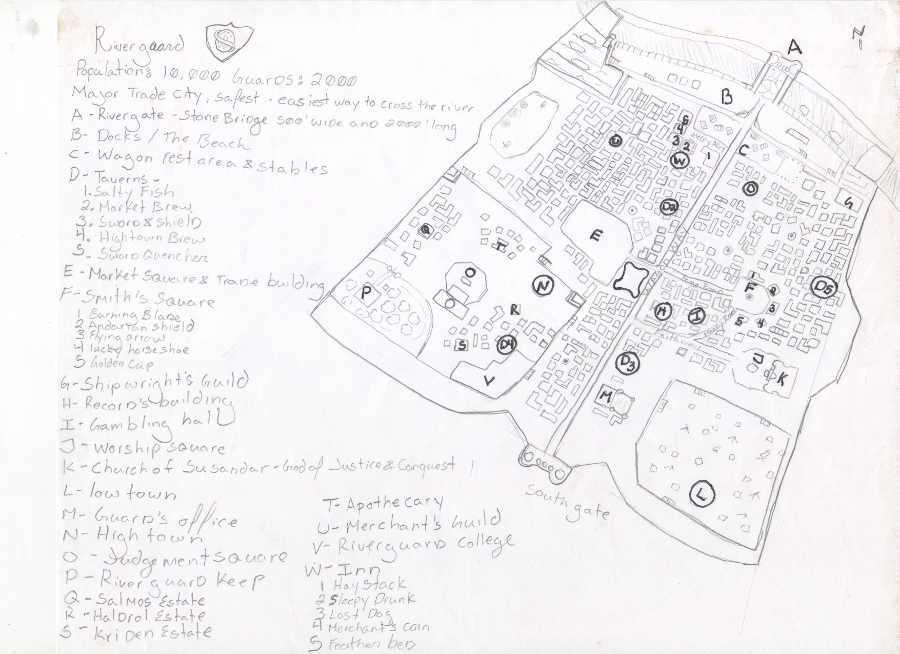 Riverguard
Population: 10,000 Guards: 2000
Major Trade City, safest - easiest way to cross the river
A - Rivergate - Stone Bridge 500' wide and 2000' long
B - Docks / The Beach
C - Wagon rest area & stables
D - Taverns -
1. Salty Fish
2. Market Brew
3. Sword & Shield
4. Hightown Brew
5. Sword Quencher
E - Market Square & Trade building
F - Smith's Square
1 Burning Blade
2 Andartan Shield
3 Flying arrow
4 lucky horseshoe
5 Golden Cup
G - Shipwright's Guild
H - Record's building
I - Gambling hall
J - Worship square
K - Church of Susandar - God of Justice & Conquest
L - low town
M - Guard's office
N - High town
O - Judgement Square
P - Riverguard Keep
Q - Salmos Estate
R - Haldrol Estate
S - Kriden Estate
T - Apothecary
U - Merchant's Guild
V - Riverguard College
W - Inn
1 Hay Stack
2 Sleepy Drunk
3 Lost Dog
4 Merchant's Coin
5 Feather bed
N
A
B
5
4
3
2
1
W
U
C
D
G
D2
E
Q
T
O
N
P
R
S
D4
V
F
1
2
3
4
5
D5
H
I
D3
J
K
M
L
South gate